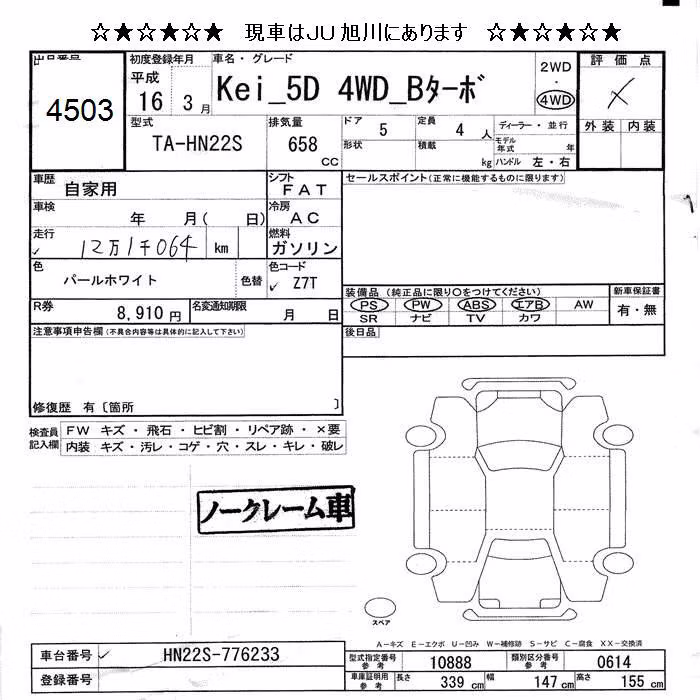 ☆★☆★☆★ 現車はJU旭川にあります ☆★☆★☆★
出品番号
4503
初度登録年月
平成
16 3月
車名・グレード
Kei_5D 4WD_Bターボ
2WD
・
4WD
評価点
×
外装 内装
型式
TA-HN22S
排気量
658
cc
ドア
5
定員
4人
形状
積載
kg
ディーラー・並行
モデル
年式 年
ハンドル 左・右
車歴
自家用
シフト
FAT
セールスポイント(正常に機能するものに限ります)
車検
年 月( 日)
冷房
AC
走行
✓ 12万1千064 km
燃料
ガソリン
色
パールホワイト
色替
色コード
✓ Z7T
装備品(純正品に限り○をつけてください)
PS PW ABS エアB AW
SR ナビ TV カワ
新車保証書
有・無
R券
8,910円
名変通知期限
月 日
後日品
注意事項申告欄(不具合内容等は具体的に記入して下さい)
修復歴 有〔箇所 〕
検査員
記入欄
FW キズ・飛石・ヒビ割・リペア跡・×要
内装 キズ・汚レ・コゲ・穴・スレ・キレ・破レ
ノークレーム車
スペア
A-キズ E-エクボ U-凹み W-補修跡 S-サビ C-腐食 XX-交換済
車台番号 ✓ HN22S-776233
登録番号
型式指定番号
参考
10888
類別区分番号
参考
0614
車庫証明用
参考
長さ
339 cm
幅
147 cm
高さ
155 cm